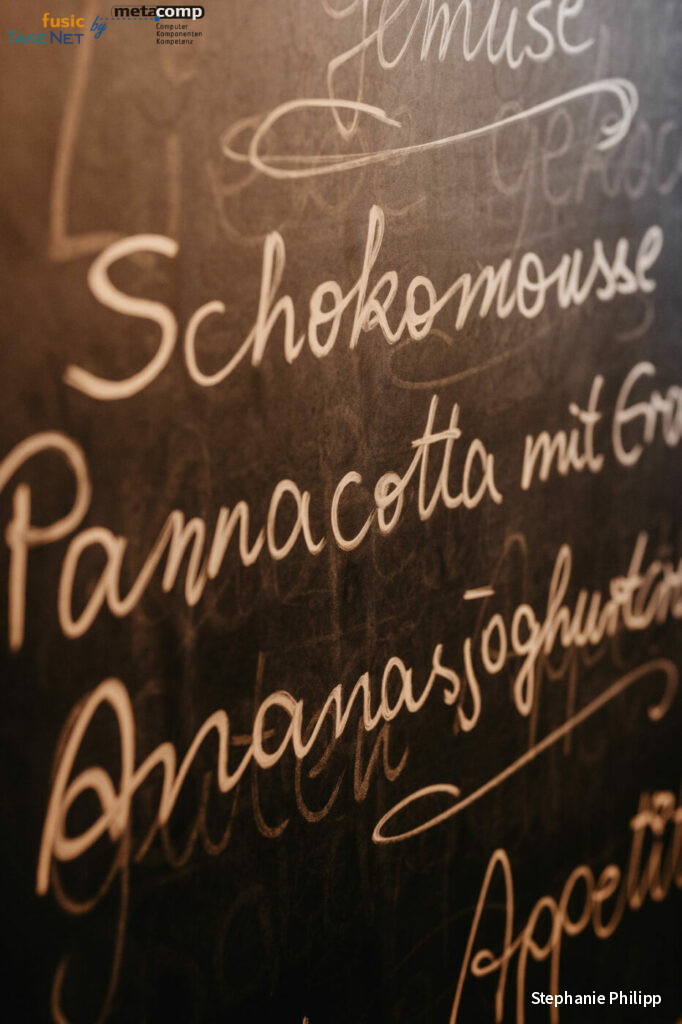 fusic by metacomp
TAKENET
Computer
Komponenten
Kompetenz
Gemüse
Schokomousse
Pannacotta mit Gro
Ananasjoghurt
Appetit
Stephanie Philipp